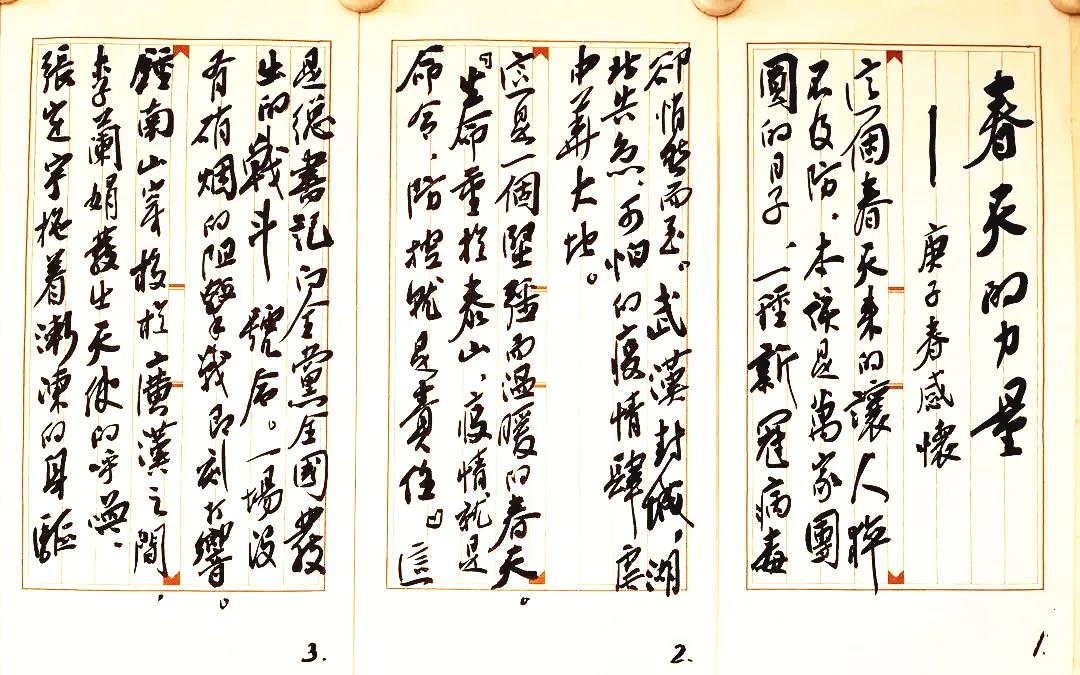 春天的力量
——庚子春感懷
這個春天来的讓人猝
不及防，本该是萬家團
圓的日子、一種新冠病毒
1.
卻悄然而至。武漢封城，湖
北告急，可怕的疫情肆虐
中華大地。
這是一個堅强而温暖的春天。
“生命重於泰山，疫情就是
命令，防控就是責任。”這
2.
是總書記向全黨全國發
出的戰斗號令。一場没
有硝烟的阻擊戰即刻打響。
鍾南山穿梭於廣漢之間，
李蘭娟發出天使的呼喚、
張定宇拖着漸凍的身軀
3.